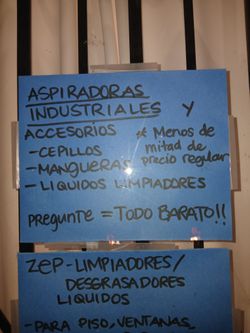 ASPIRADORAS
INDUSTRIALES Y
ACCESORIOS * Menos de
-CEPILLOS mitad de
-MANGUERAS precio regular
-LIQUIDOS LIMPIADORES
PREGUNTE = TODO BARATO!!
ZEP-LIMPIADORES/
DESGRASADORES
LIQUIDOS
-PARA PISO, VENTANAS